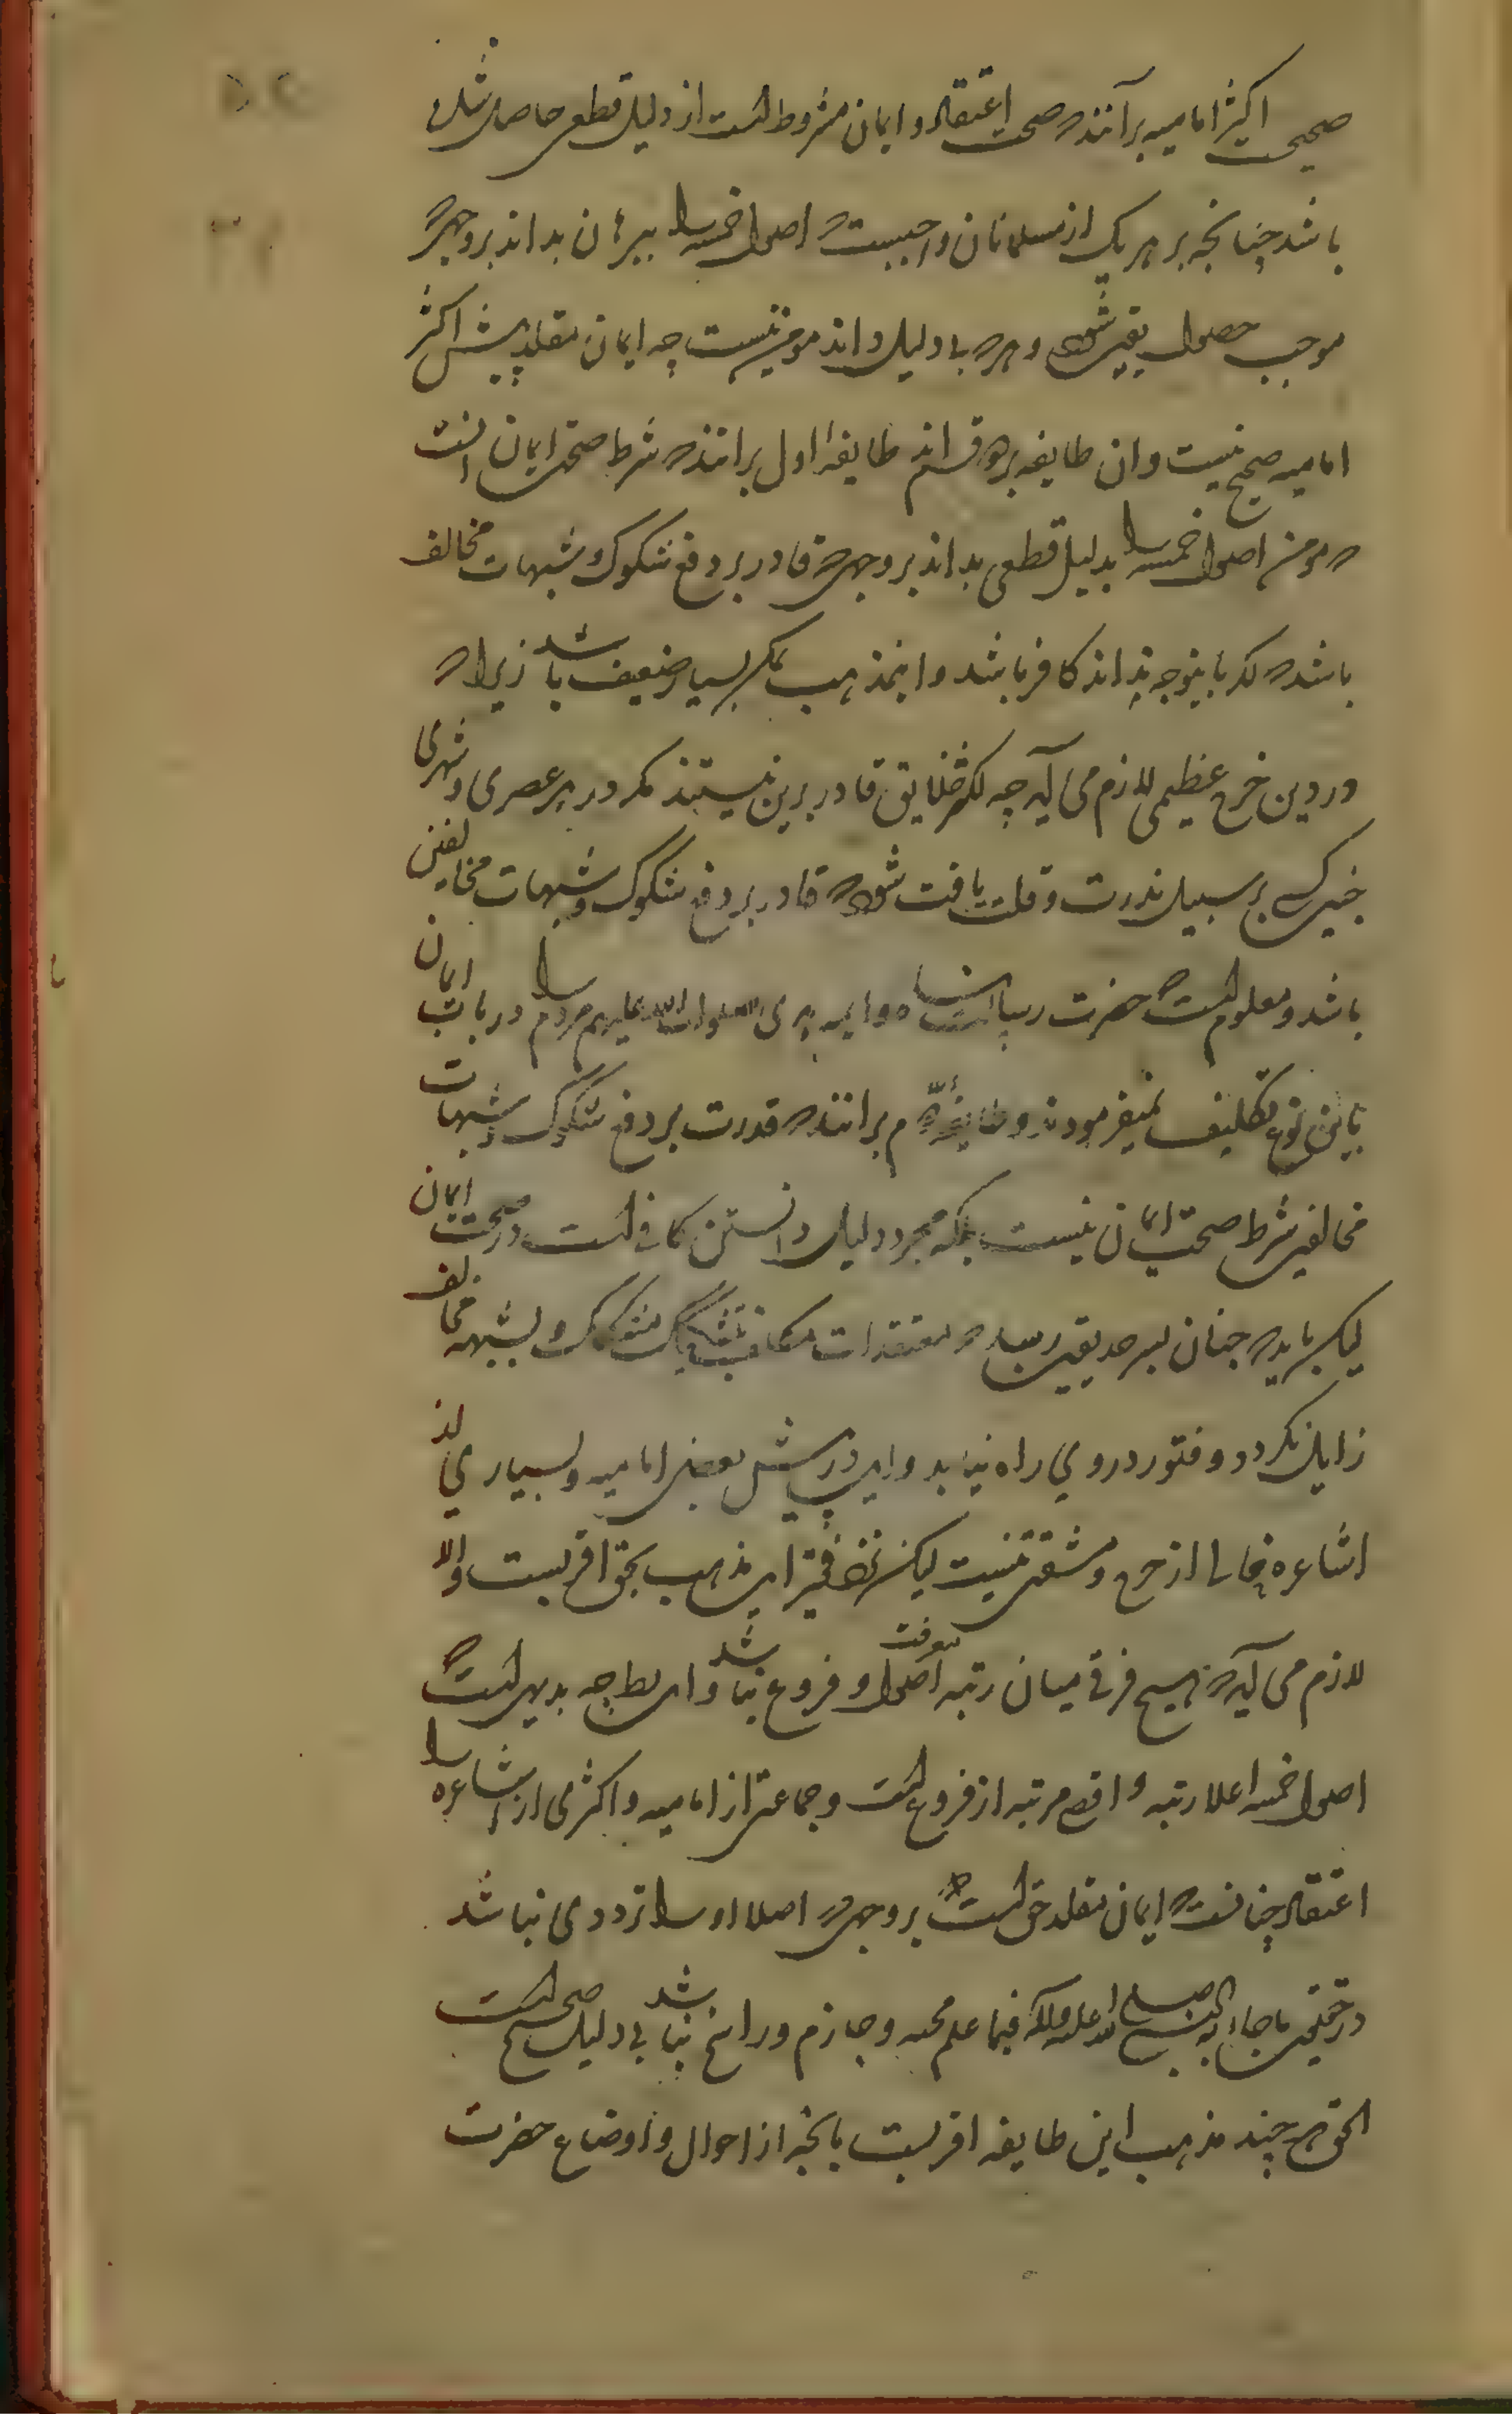 صحیحست اکثر امامیه برآنند که صحت اعتقاد و ایمان مشروط است از دلیل قطعی حاصل شده
باشد چنانچه بر هر یک از مسلمانان واجبست که اصول خمسه را ببرهان بداند بر وجهی که
موجب حصول یقین شود و هر که بی دلیل داند مومن نیست چه ایمان مقلد پیش اکثر
امامیه صحیح نیست و ان طایفه بر دو قسم اند طایفهٔ اول برانند که شرط صحت ایمان انست
که مومن اصول خمسه را بدلیل قطعی بداند بر وجهی که قادر بر دفع شکوک و شبهات مخالف
باشد که اگر باینوجه نداند کافر باشد و اینمذهب بسیار ضعیف باشد زیرا که
در دین خرج عظیمی لازم می آید چه اکثر خلایق قادر برین نیستند مگر در هر عصری و شهری
کسی بر سبیل ندرت و قلت یافت شود که قادر بر دفع شکوک و شبهات مخالفین
باشد و معلوم است که حضرت رسالت پناه و ایمه هدی صلوات الله علیهم مردم را در باب ایمان
باین نوع تکلیف نمیفرمودند و طایفهٔ دوم برانند که قدرت بر دفع شکوک و شبهات
مخالفین شرط صحت ایمان نیست بلکه مجرد دلیل دانستن کافی است در صحت ایمان
لیکن باید که چنان بسر حد یقین رساند که معتقدات مکلف بتشکیک مشکک و بشبهه مخالف
زایل نگردد و فتور در وی راه نیابد و این در پیش بعضی امامیه و بسیاری از
اشاعره خالی از حرج و مشقتی نیست لیکن نزد فقیر این مذهب بحق اقربست و الا
لازم می آید که هیچ فرقی میان رتبه معرفت اصول و فروع نباشد و این بدیهی است که
اصول خمسه را اعلا رتبه و اقصی مرتبه از فروع است و جماعتی از امامیه و اکثری از اشاعره
اعتقاد چنانست که ایمان مقلد حق است بر وجهی که اصلا او را ترددی نباشد
در حقیت ما جاء به النبی صلی الله علیه و آله فیما علم مجیئه و جازم و راسخ باشد بی دلیل صحیح است
الحق هر چند مذهب این طایفه اقربست بآنچه از احوال و اوضاع حضرت